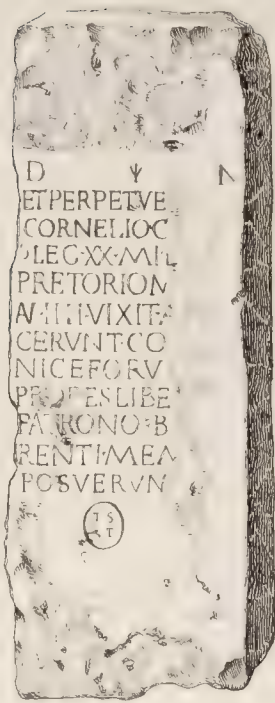 D Ψ N
ET PERPETVE
CORNELIO C
LEG·XX·MIL
PRETORION
AN IIII VIXIT A
CERVNT·CO
NICEFORV
LIBE
PATRONO·B
RENTI·MEA
POSVERVN
T S
T